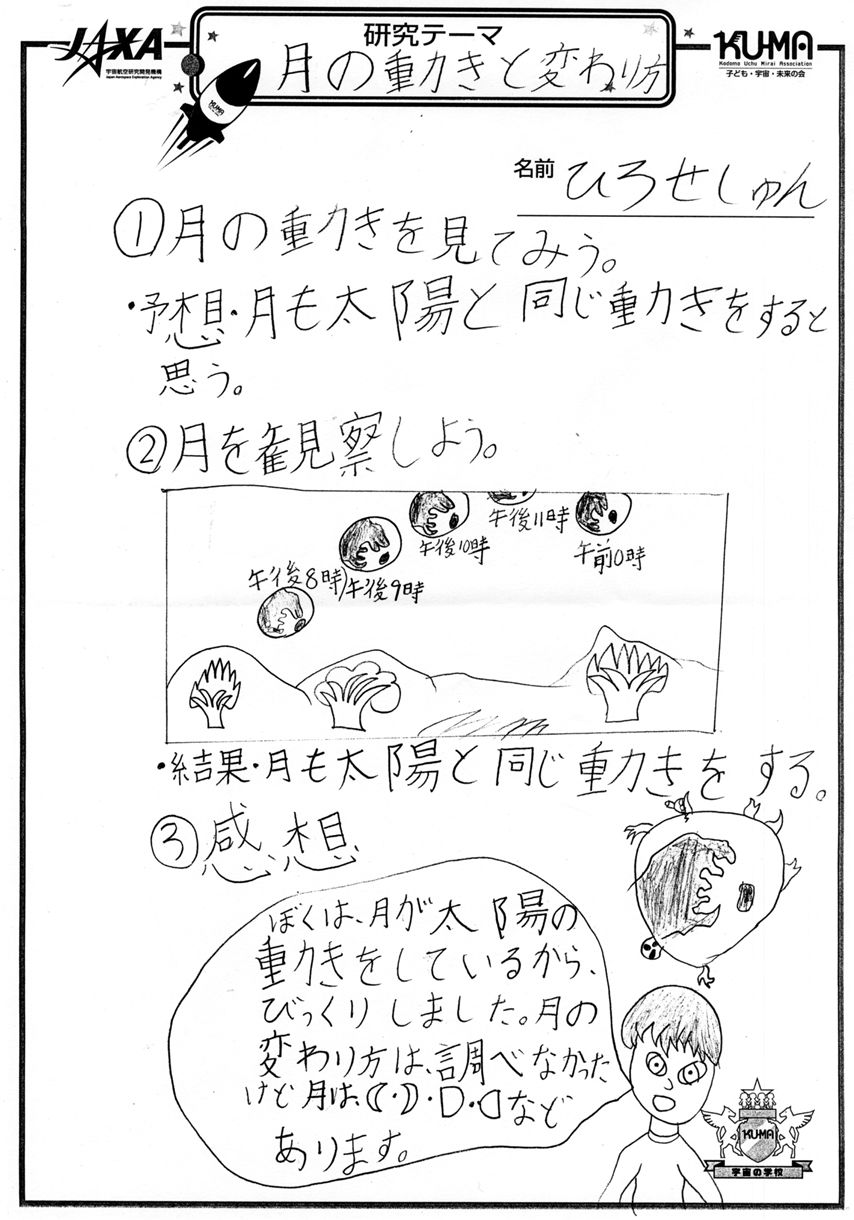 JAXA
宇宙航空研究開発機構
Japan Aerospace Exploration Agency
研究テーマ
月の動きと変わり方
KU-MA
Kodomo Uchu Mirai Association
子ども・宇宙・未来の会
KUMA
名前 ひろせしゅん
①月の動きを見てみう。
・予想・月も太陽と同じ動きをすると
思う。
②月を観察しよう。
午後8時
午後9時
午後10時
午後11時
午前0時
・結果・月も太陽と同じ動きをする。
③感想
ぼくは、月が太陽の
動きをしているから、
びっくりしました。月の
変わり方は、調べなかった
けど月は、☾・)・D・Dなど
あります。
KU-MA
宇宙の学校